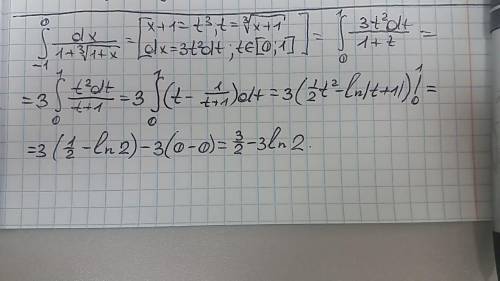 ∫_{-1}^{0} dx/(1+∛(1+x)) = [x+1=t³, t=∛(x+1); dx=3t²dt; t∈[0;1]] = ∫_{0}^{1} 3t²dt/(1+t) =
=3∫_{0}^{1} t²dt/(t+1) = 3∫_{0}^{1} (t - 1/(t+1))dt = 3(1/2 t² - ln|t+1|)|_{0}^{1} =
=3(1/2 - ln2) - 3(0-0) = 3/2 - 3ln2.